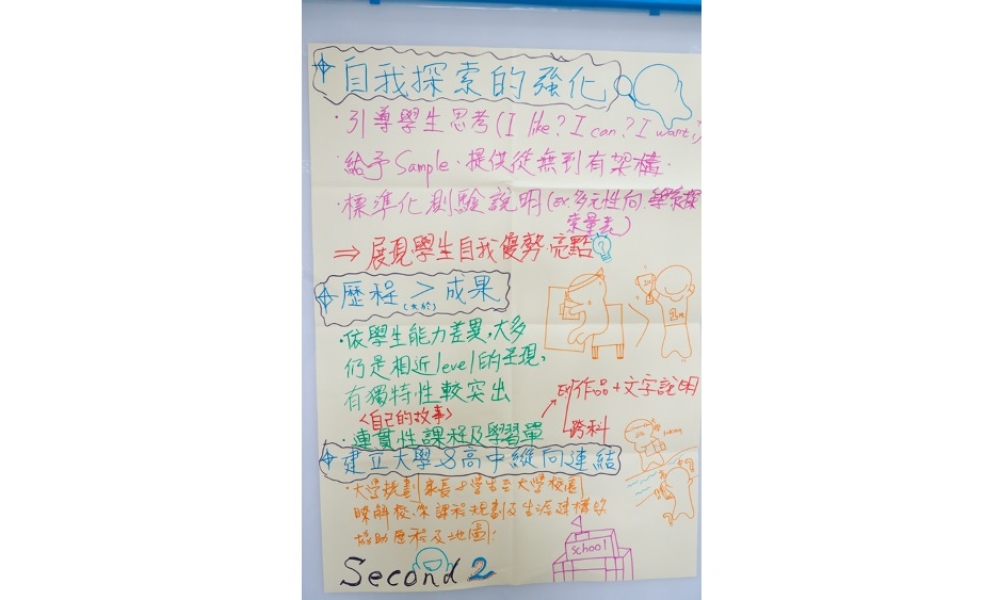 自我探索的強化
·引導學生思考(I like? I can? I want?)
·給予Sample、提供從無到有架構.
·標準化測驗說明(ex.多元性向、學系探
索量表)
⇒ 展現學生自我優勢、亮點
歷程 > 成果
(大於)
·依學生能力差異,大多
仍是相近level的呈現,
有獨特性較突出
<自己的故事>
作品+文字說明
跨科
·連貫性課程及學習單
建立大學&高中縱向連結
·大學規劃家長&學生至大學校園
瞭解校、系課程規劃及生涯
協助歷程及地圖.
school
Second 2